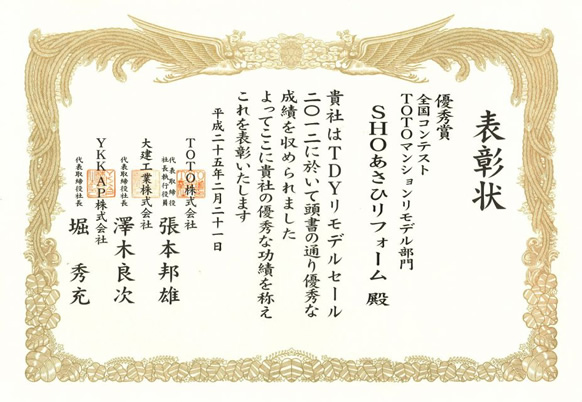 表彰状
優秀賞
全国コンテスト
TOTOマンションリモデル部門
SHOあさひリフォーム 殿
貴社はTDYリモデルセール
二〇一二に於いて頭書の通り優秀な
成績を収められました
よってここに貴社の優秀な功績を称え
これを表彰いたします
平成二十五年二月二十一日
TOTO株式会社
代表取締役
社長執行役員
張本邦雄
大建工業株式会社
代表取締役社長
澤木良次
YKK AP株式会社
代表取締役社長
堀 秀充